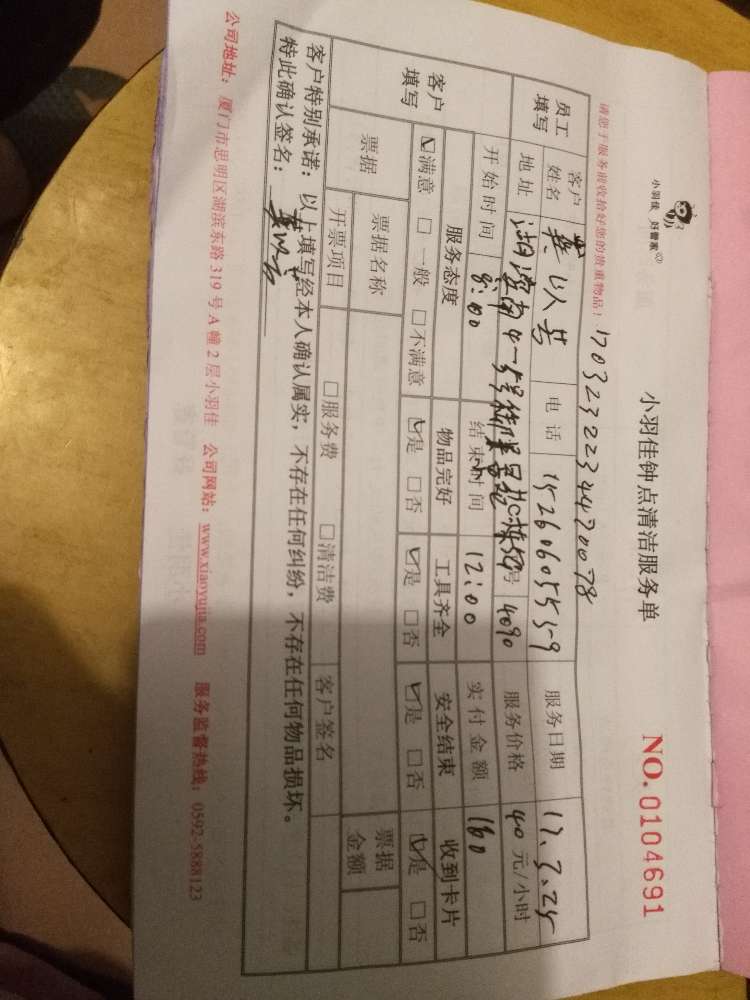 小羽佳 好管家
小羽佳钟点清洁服务单
NO.0104691
请您于服务前收拾好您的贵重物品!
员工填写 客户姓名 以 电话 服务日期 17.3.25
地址 湖滨南 号 4090 服务价格 40 元/小时
开始时间 8:00 结束时间 12:00 实付金额 160
客户填写 服务态度 物品完好 工具齐全 安全结束 收到卡片
☑满意 □一般 □不满意 ☑是 □否 ☑是 □否 ☑是 □否 ☑是 □否
票据 票据名称 票据金额
开票项目 □服务费 □清洁费 客户签名
客户特别承诺:以上填写经本人确认属实,不存在任何纠纷,不存在任何物品损坏。
特此确认签名:
公司地址:厦门市思明区湖滨东路319号A幢2层小羽佳 公司网站:www.xiaoyujia.com 服务监督热线:0592-5888123